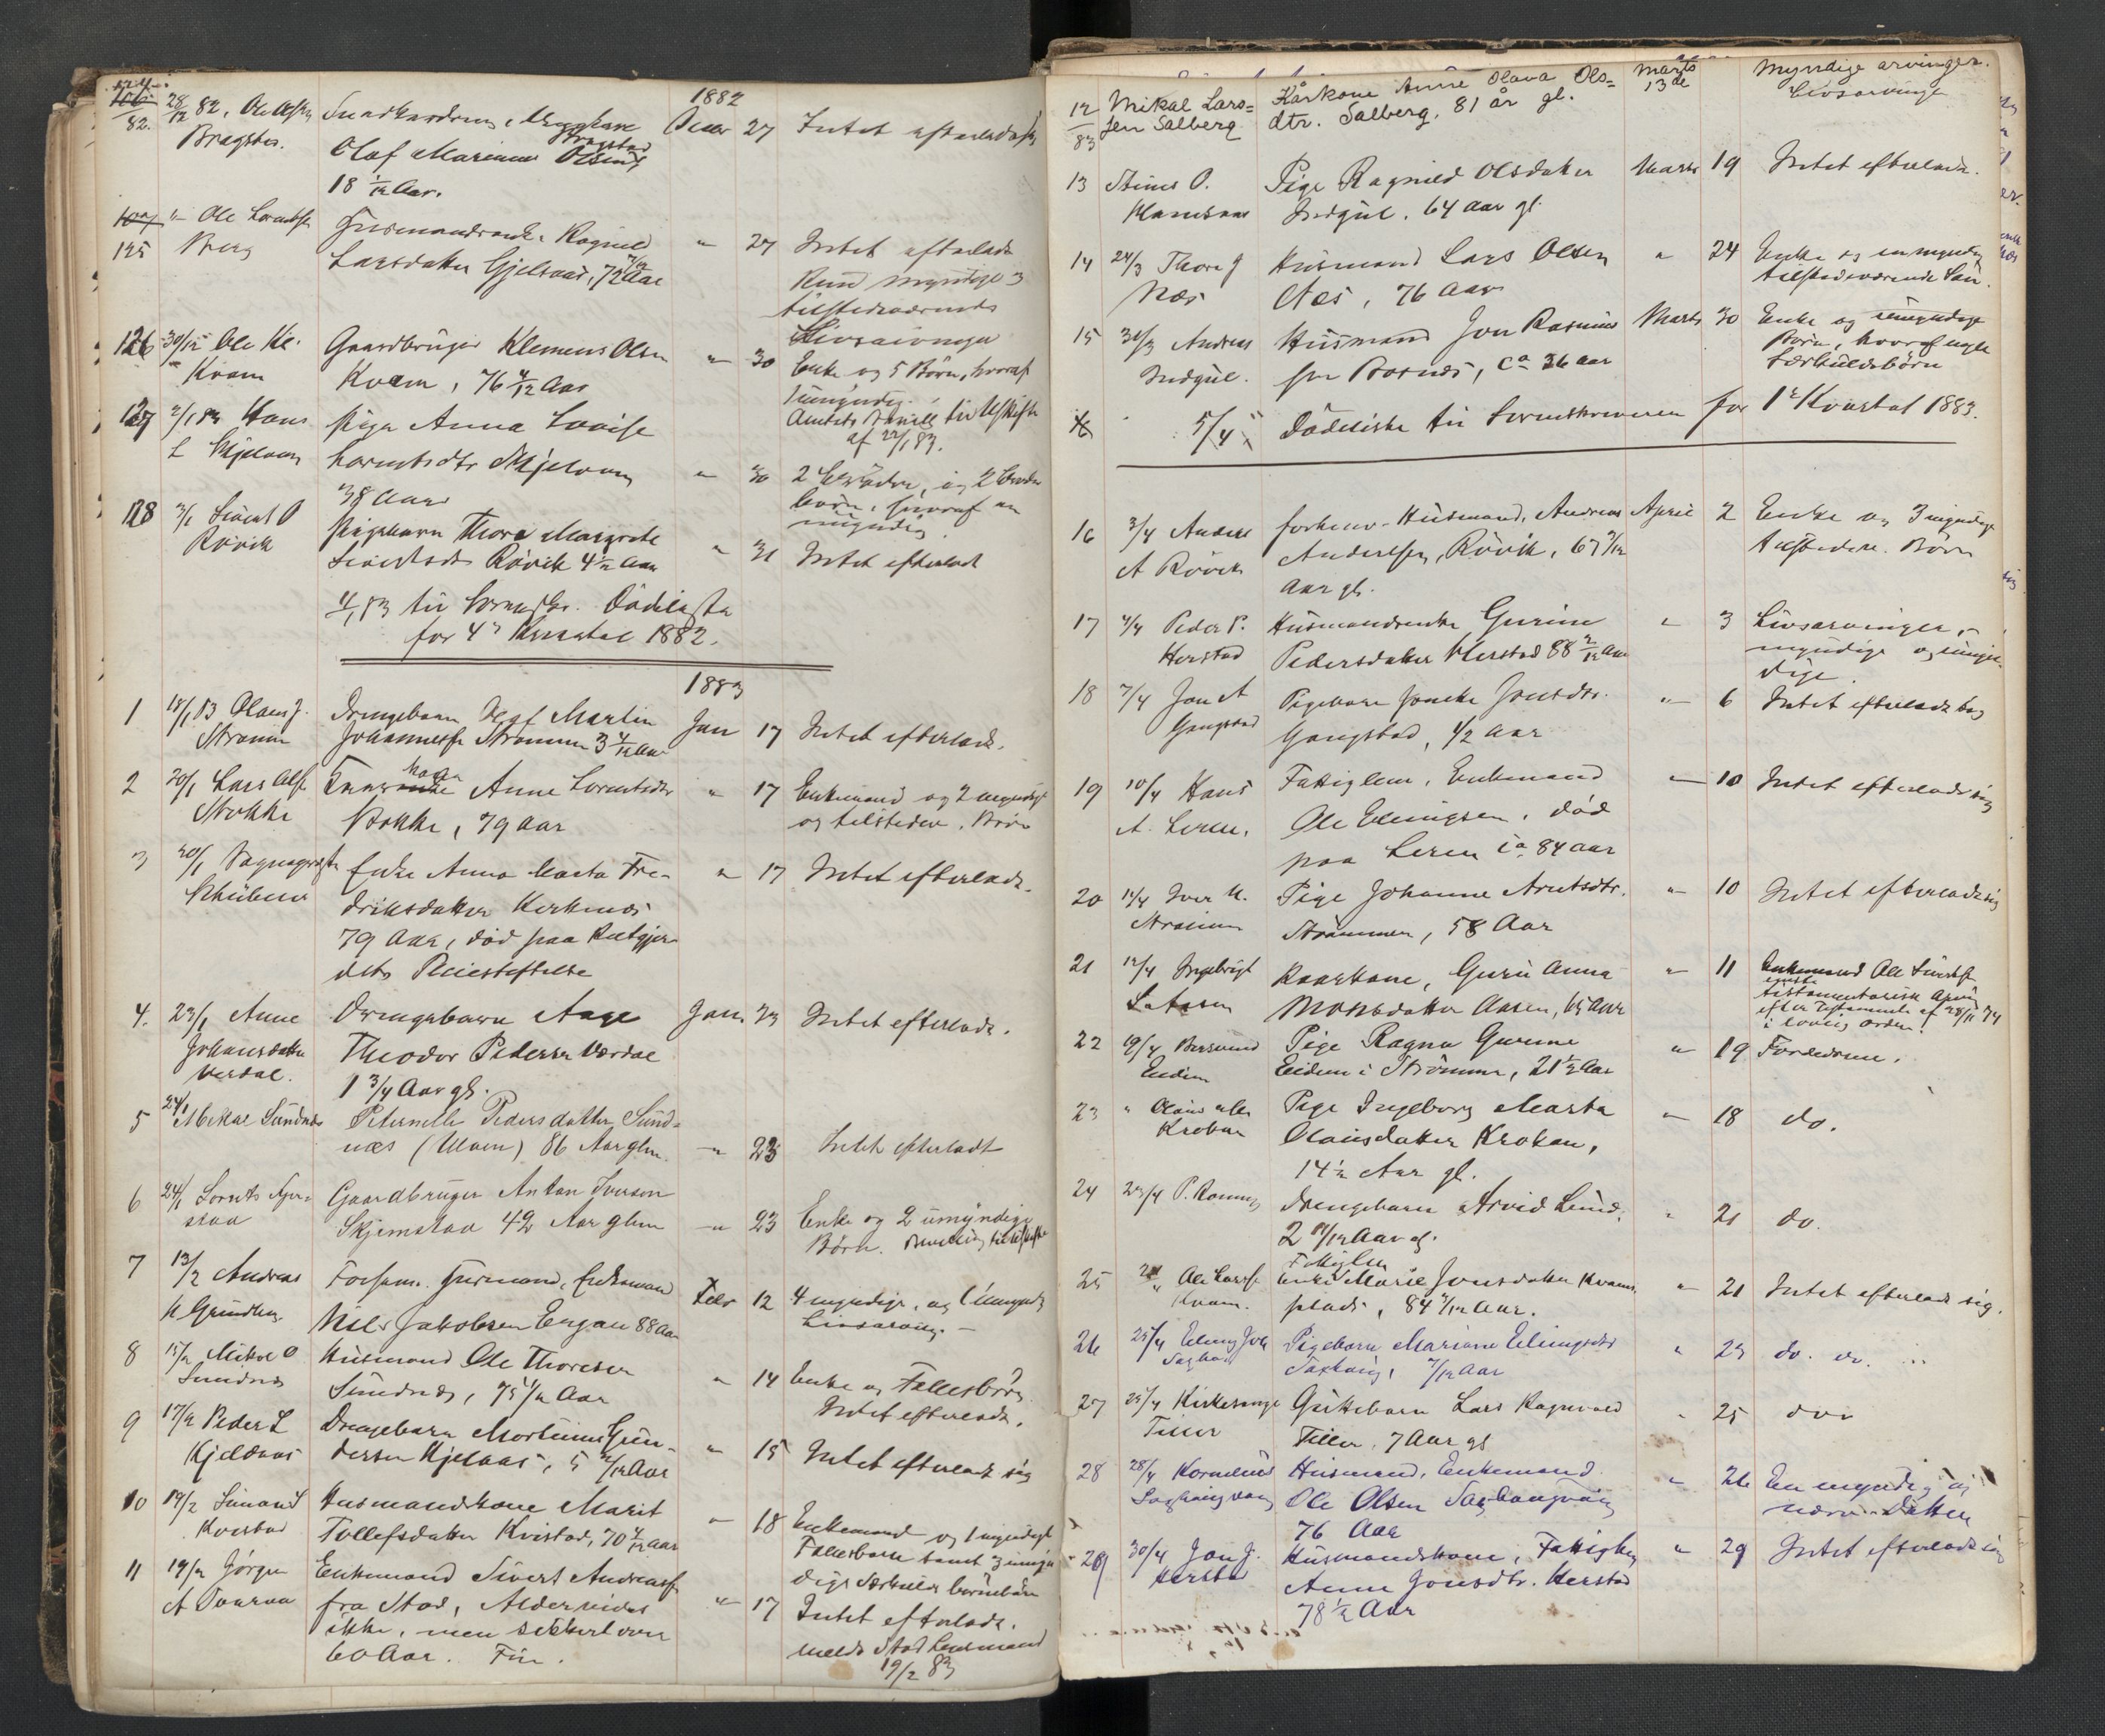 1882
28/12 82. Ole
Bragstad.
Olaf Marinus Olsen
Bragstad
18 1/12 Aar.
Decbr 27 Intet efterladt sig
125 " Ole Lorntsen
Berg
Ragnild
Larsdatter Gjelsaas, 72 Aar
" 27 Intet efterladt
Kun myndige
tilstedeværende
Livsarvinger
126 30/12 Ole Kl.
Kvam
Gaardbruger Klemens Olsen
Kvam, 76 4/12 Aar
" 30 Enke og 5 Børn, hvoraf
1 umyndig.
af 22/1 83.
127 2/1 83 Hans
L Skjelvan
Pige Anna Lovise
Lorntsdtr Skjelvan
38 Aar
" 30 2 og 2
børn, hvoraf en
umyndig
128 3/1 Sivert O
Rövik
Pigebarn Thora Margrete
Sivertsdtr Rövik 4 1/2 Aar
" 31 Intet efterladt
4/1 83 til Dödsliste
for 4de Kvartal 1882.
1883
1 18/1 83 Olaus J.
Strömm
Drengebarn Olaf Martin
Johannessen Strömmen 3 4/12 Aar
Jan 17 Intet efterladt.
2 20/1 Lars Olsen
Stokke
kone Anne Lorntsdtr
Stokke, 79 Aar
" 17 Enkemand og 2 myndige
og tilstedev. Börn
3 20/1 Sognepræst
Enke Anna Marta Fre-
driksdatter Kirknes
79 Aar, död paa Rostgjer-
dets Pleiestiftelse
" 17 Intet efterladt.
4. 23/1 Anne
Johansdatter
Verdal.
Drengebarn Aage
Theodor Pedersen Værdal
1 3/4 Aar gl.
Jan. 23 Intet efterladt.
5 24/1 Mikal Sundnes
Peternelle Pedersdatter Sund-
næs (Ulven) 86 Aar glm.
" 23 Intet efterladt
6 24/1 Lornts Skjem-
stad
Gaardbruger Anton Iverson
Skjemstad 42 Aar glm
" 23 Enke og 2 umyndige
Börn. Bevilling til Uskifte
7 13/2 Andreas
Forhenv. Husmand, Enkemand
Nils Jakobsen Engan 88 Aar
Febr 12 4 myndige, og 1 umynd.
Livsarving. —
8 15/2 Mikal O
Sundnes
Husmand Ole Thoresen
Sundnes, 75 1/2 Aar
" 14 Enke og Fællesbörn
Intet efterladt.
9 17/2 Peder L
Kjeldaas
Drengebarn Mortinus Gun-
dersen Kjelaas, 5 Aar
" 15 Intet efterladt sig
10 19/2 Simon S
Kvistad
Husmandskone Marit
Tollefsdatter Kvistad, 70 4/12 Aar
" 18 Enkemand og 1 myndigt
Fællesbarn samt 3 umyn-
dige Særkulds barnebörn
11 19/2 Jörgen
A
Enkemand Sivert Andreassen
fra Stod, Alder vides
ikke, men sikkert over
60 Aar. Fin.
" 17 Intet efterladt.
meldt Stod Lensmand
19/2 83
12/83 Mikal Lars-
sen Salberg
Kårkone Anne Olava Ols-
dtr. Salberg, 81 år gl.
Marts 13de
Myndige arvinger.
Livsarvinger
13
Pige Ragnild Olsdatter
Indgul. 64 aar gl.
Marts 19 Intet efterladt.
14 24/3 Thore J
Næs
Husmand Lars Olsen
Næs, 76 Aar
" 24 Enke og en myndig
tilstedeværende Sön.
15 30/3 Andreas
Indgul.
Husmand Jon Rasmus
sen Bosnes, ca 36 aar
Marts 30 Enke og umyndige
Börn, hvoraf nogle
Særkuldsbörn
5/4 Dödsliste til Sorenskriveren for 1ste Kvartal 1883.
16 3/4 Anders
A Rövik
forhenv. Husmand, Andreas
Anderssen, Rövik, 67 Aar gl.
April 2 Enke og 3 myndige
tilstedev. Börn
17 4/4 Peder P.
Herstad
Husmandsenke Gurine
Pedersdatter Herstad 88 2/12 Aar
" 3 Livsarvinger,
myndige og umyn-
dige.
18 7/4 Jon A
Gangstad
Pigebarn Jonsdtr.
Gangstad, 1/2 Aar
" 6 Intet efterladt sig
19 10/4 Hans
A. Leren.
Fattiglem, Enkemand
Ole Ellingsen, död
paa Leren ca 84 aar
" 10 Intet efterladt sig
20 11/4 Iver
Strömmen
Pige Johanne Arntsdtr.
Strömmen, 58 Aar
" 10 Intet efterladt sig
21 12/4 Ingebrigt
Kaarkone, Guru Anna
Monsdatter Aasen, 65 Aar
" 11 Enkemand Ole Sivertsen
eneste
testamentarisk Arving
efter Testamente af 28/11 74
i lovlig orden.
22 19/4
Eidem
Pige Ragna Gurine
Eidem i Strömmen, 21 1/2 Aar
" 19 Forældrene.
23 " Olaus
Krokan
Pige Ingeborg Marta
Olausdatter Krokan,
14 1/2 Aar gl.
" 18 do.
24 23/4 P.
Drengebarn Arvid Lund.
2 Aar gl.
" 21 do.
25 " Ole Larsen
Kvam.
Fattiglem
Enke Marie Jonsdatter Kvams-
plads, 84 Aar.
" 21 Intet efterladt sig.
26 25/4 Elling Joh
Pigebarn Marianne Ellingsdtr
Saxhaug, 7/12 Aar
" 23 do. do.
27 25/4 Kirkesanger
Tiller
Guttebarn Lars Ragnvald
Tiller, 7 Aar gl
" 25 do
28 28/4 Kornelius
Husmand, Enkemand
Ole Olsen
76 Aar
" 26 En myndig og
nærv. Datter
29 30/4 Jon J.
Herstad
Husmandskone, Fattiglem
Anne Jonsdtr. Herstad
78 1/2 Aar
" 29 Intet efterladt sig